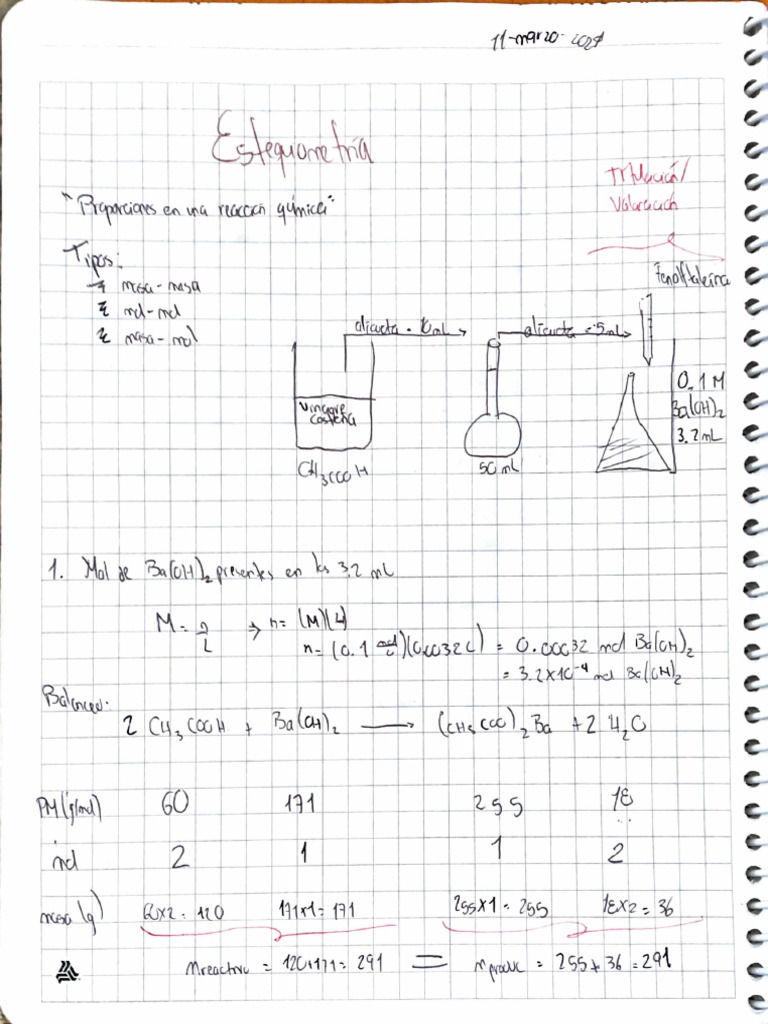 11-marzo-2021
Estequiometría
Titulación/
Valoración
"Proporciones en una reacción química"
Tipos:
masa-masa
mol-mol
masa-mol
Fenolftaleína
alicuota = 10mL
alicuota = 5mL
Vinagre
costeña
CH₃COOH
50 mL
0.1 M
Ba(OH)₂
3.2 mL
1. Mol de Ba(OH)₂ presentes en los 3.2 mL
M = n/L → n = (M)(L)
n = (0.1 mol/L)(0.0032 L) = 0.00032 mol Ba(OH)₂
= 3.2x10⁻⁴ mol Ba(OH)₂
Balanceo:
2 CH₃COOH + Ba(OH)₂ → (CH₃COO)₂Ba + 2 H₂O
PM (g/mol) 60 171 255 18
mol 2 1 1 2
masa (g) 60x2 = 120 171x1 = 171 255x1 = 255 18x2 = 36
m reactivo = 120+171 = 291 = m produc = 255+36 = 291